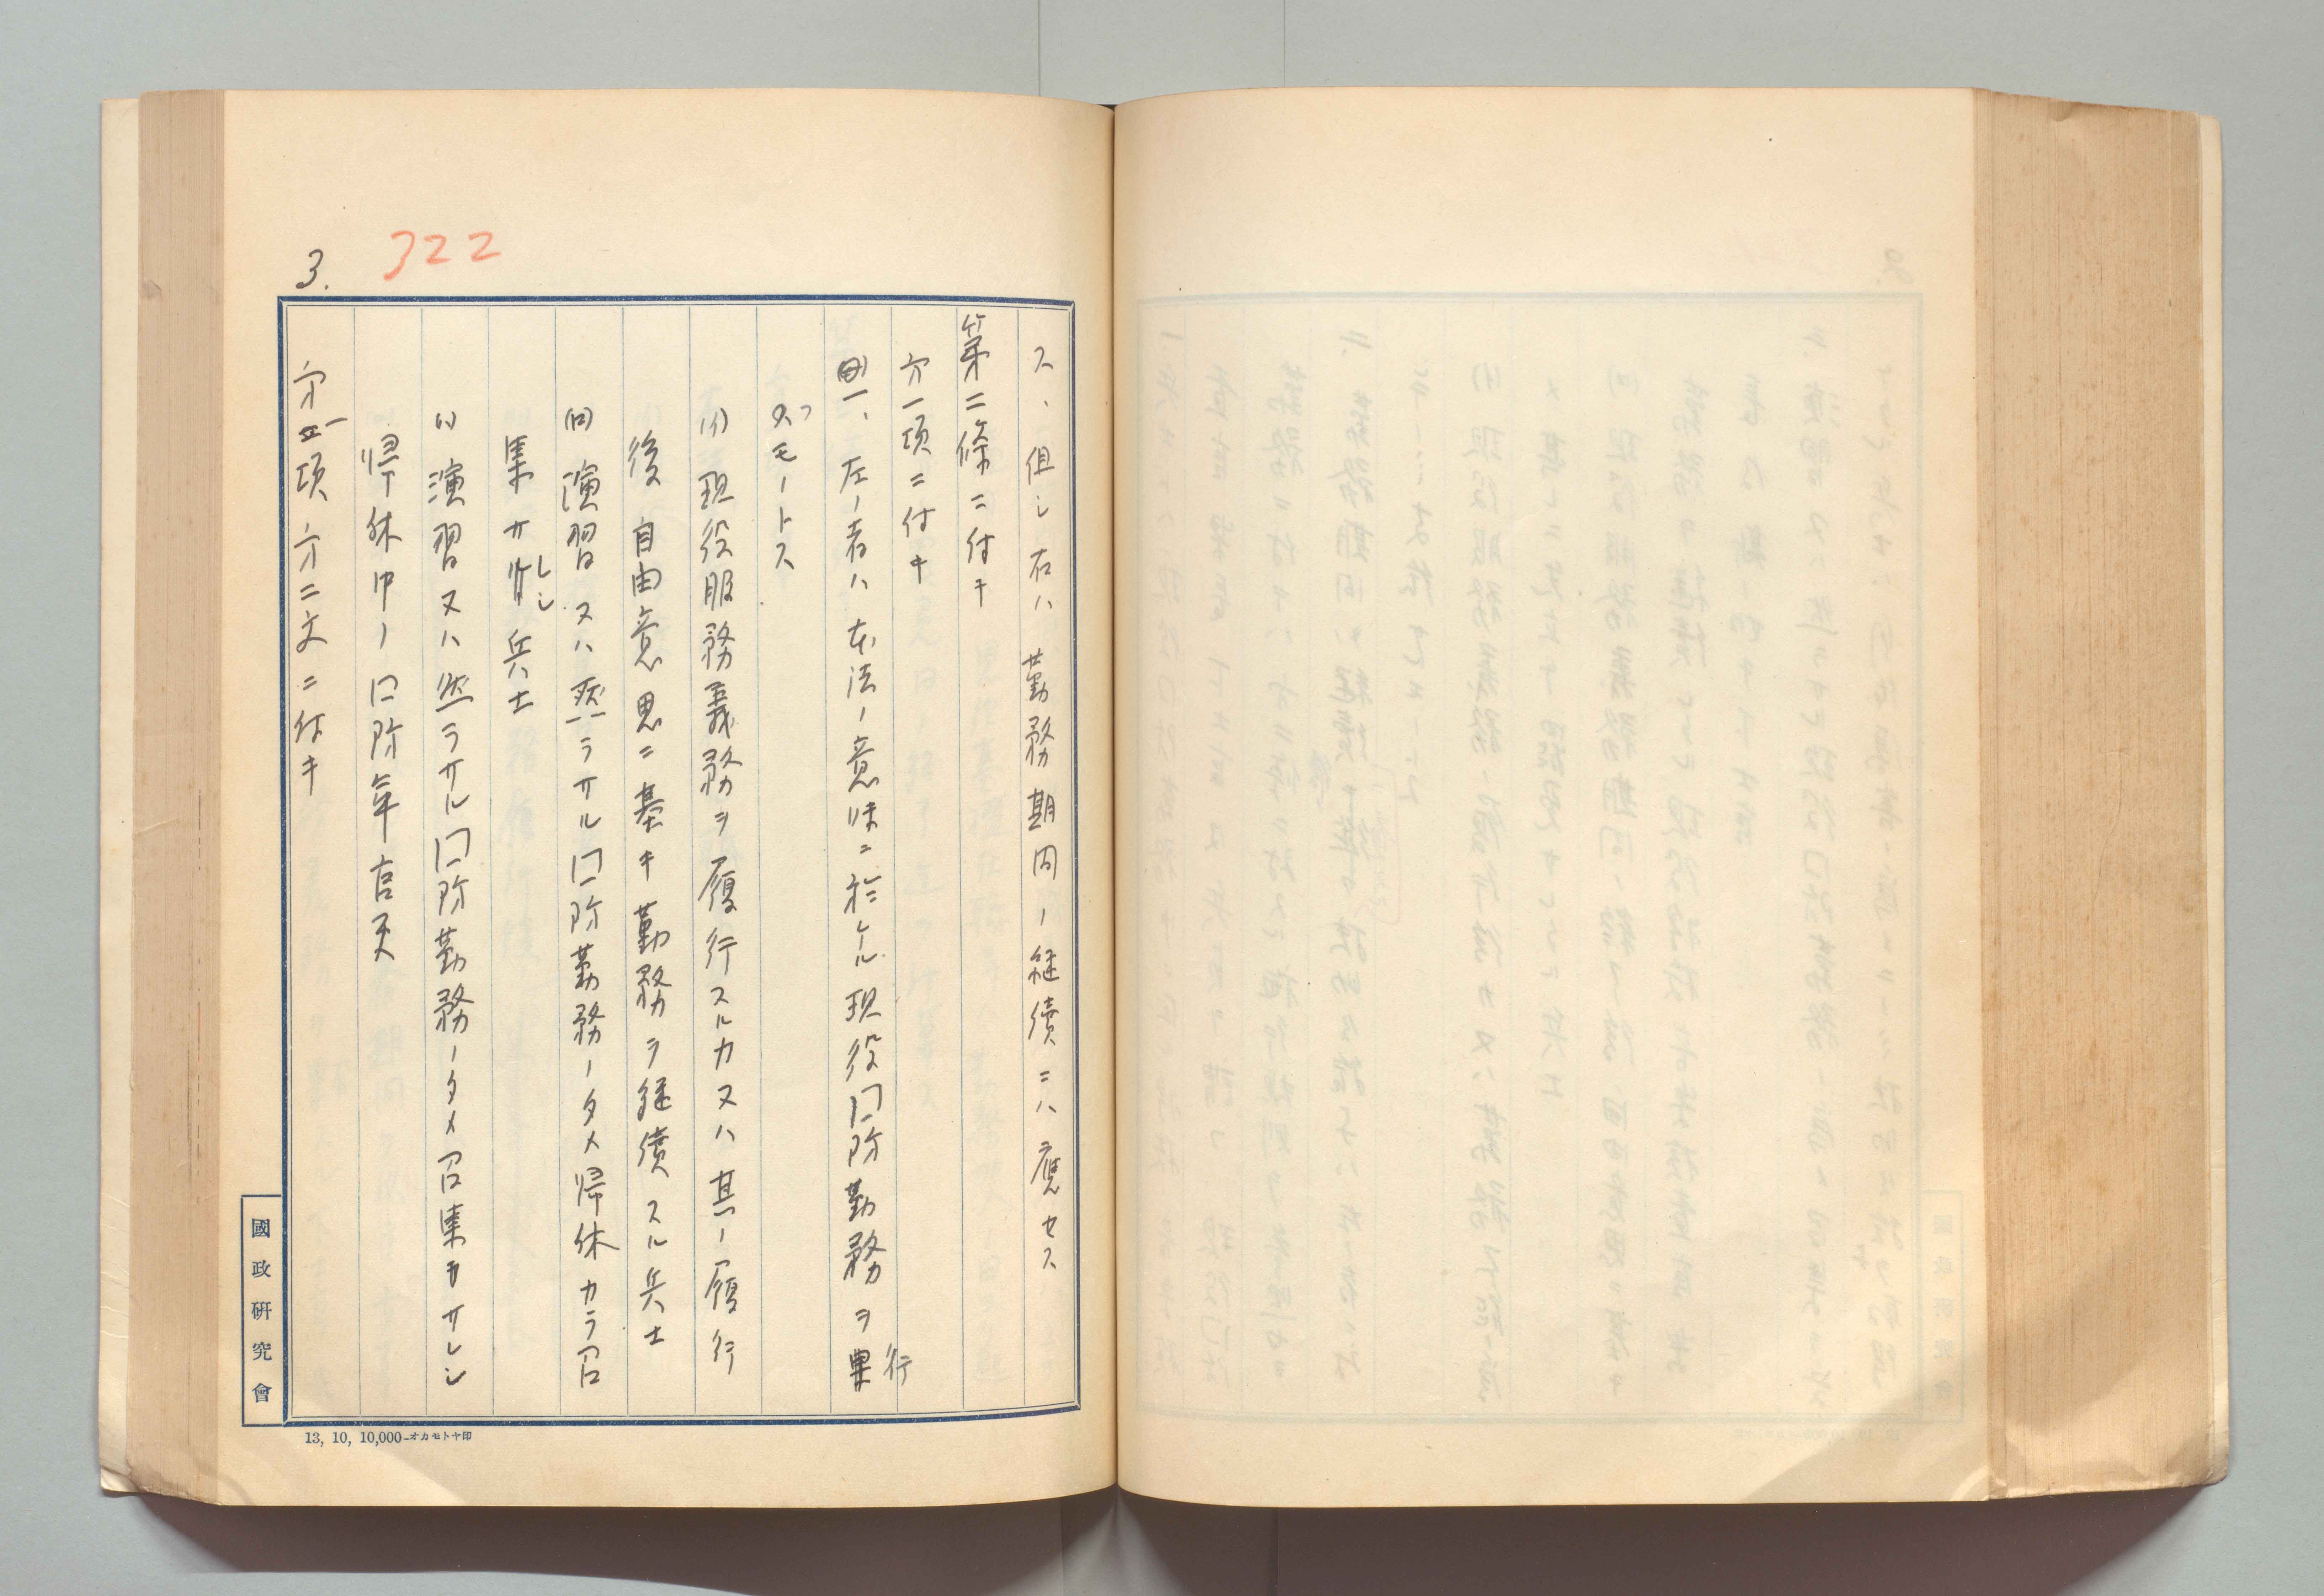 322
3.
ス、但シ右ハ勤務期間ノ継続ニハ應セス
第二條ニ付キ
第一項ニ付キ
一、左ノ者ハ本法ノ意味ニ於ケル現役国防勤務ヲ行
フモノトス
(イ) 現役服務義務ヲ履行スルカ又ハ其ノ履行
後自由意思ニ基キ勤務ヲ継續スル兵士
(ロ) 演習又ハ然ラサル国防勤務ノタメ帰休カラ召
集サレシ兵士
(ハ) 演習又ハ然ラサル国防勤務ノタメ召集サレシ
帰休中ノ国防軍官吏
第一項第二文ニ付キ
國政研究會
13, 10, 10,000-オカモトヤ印